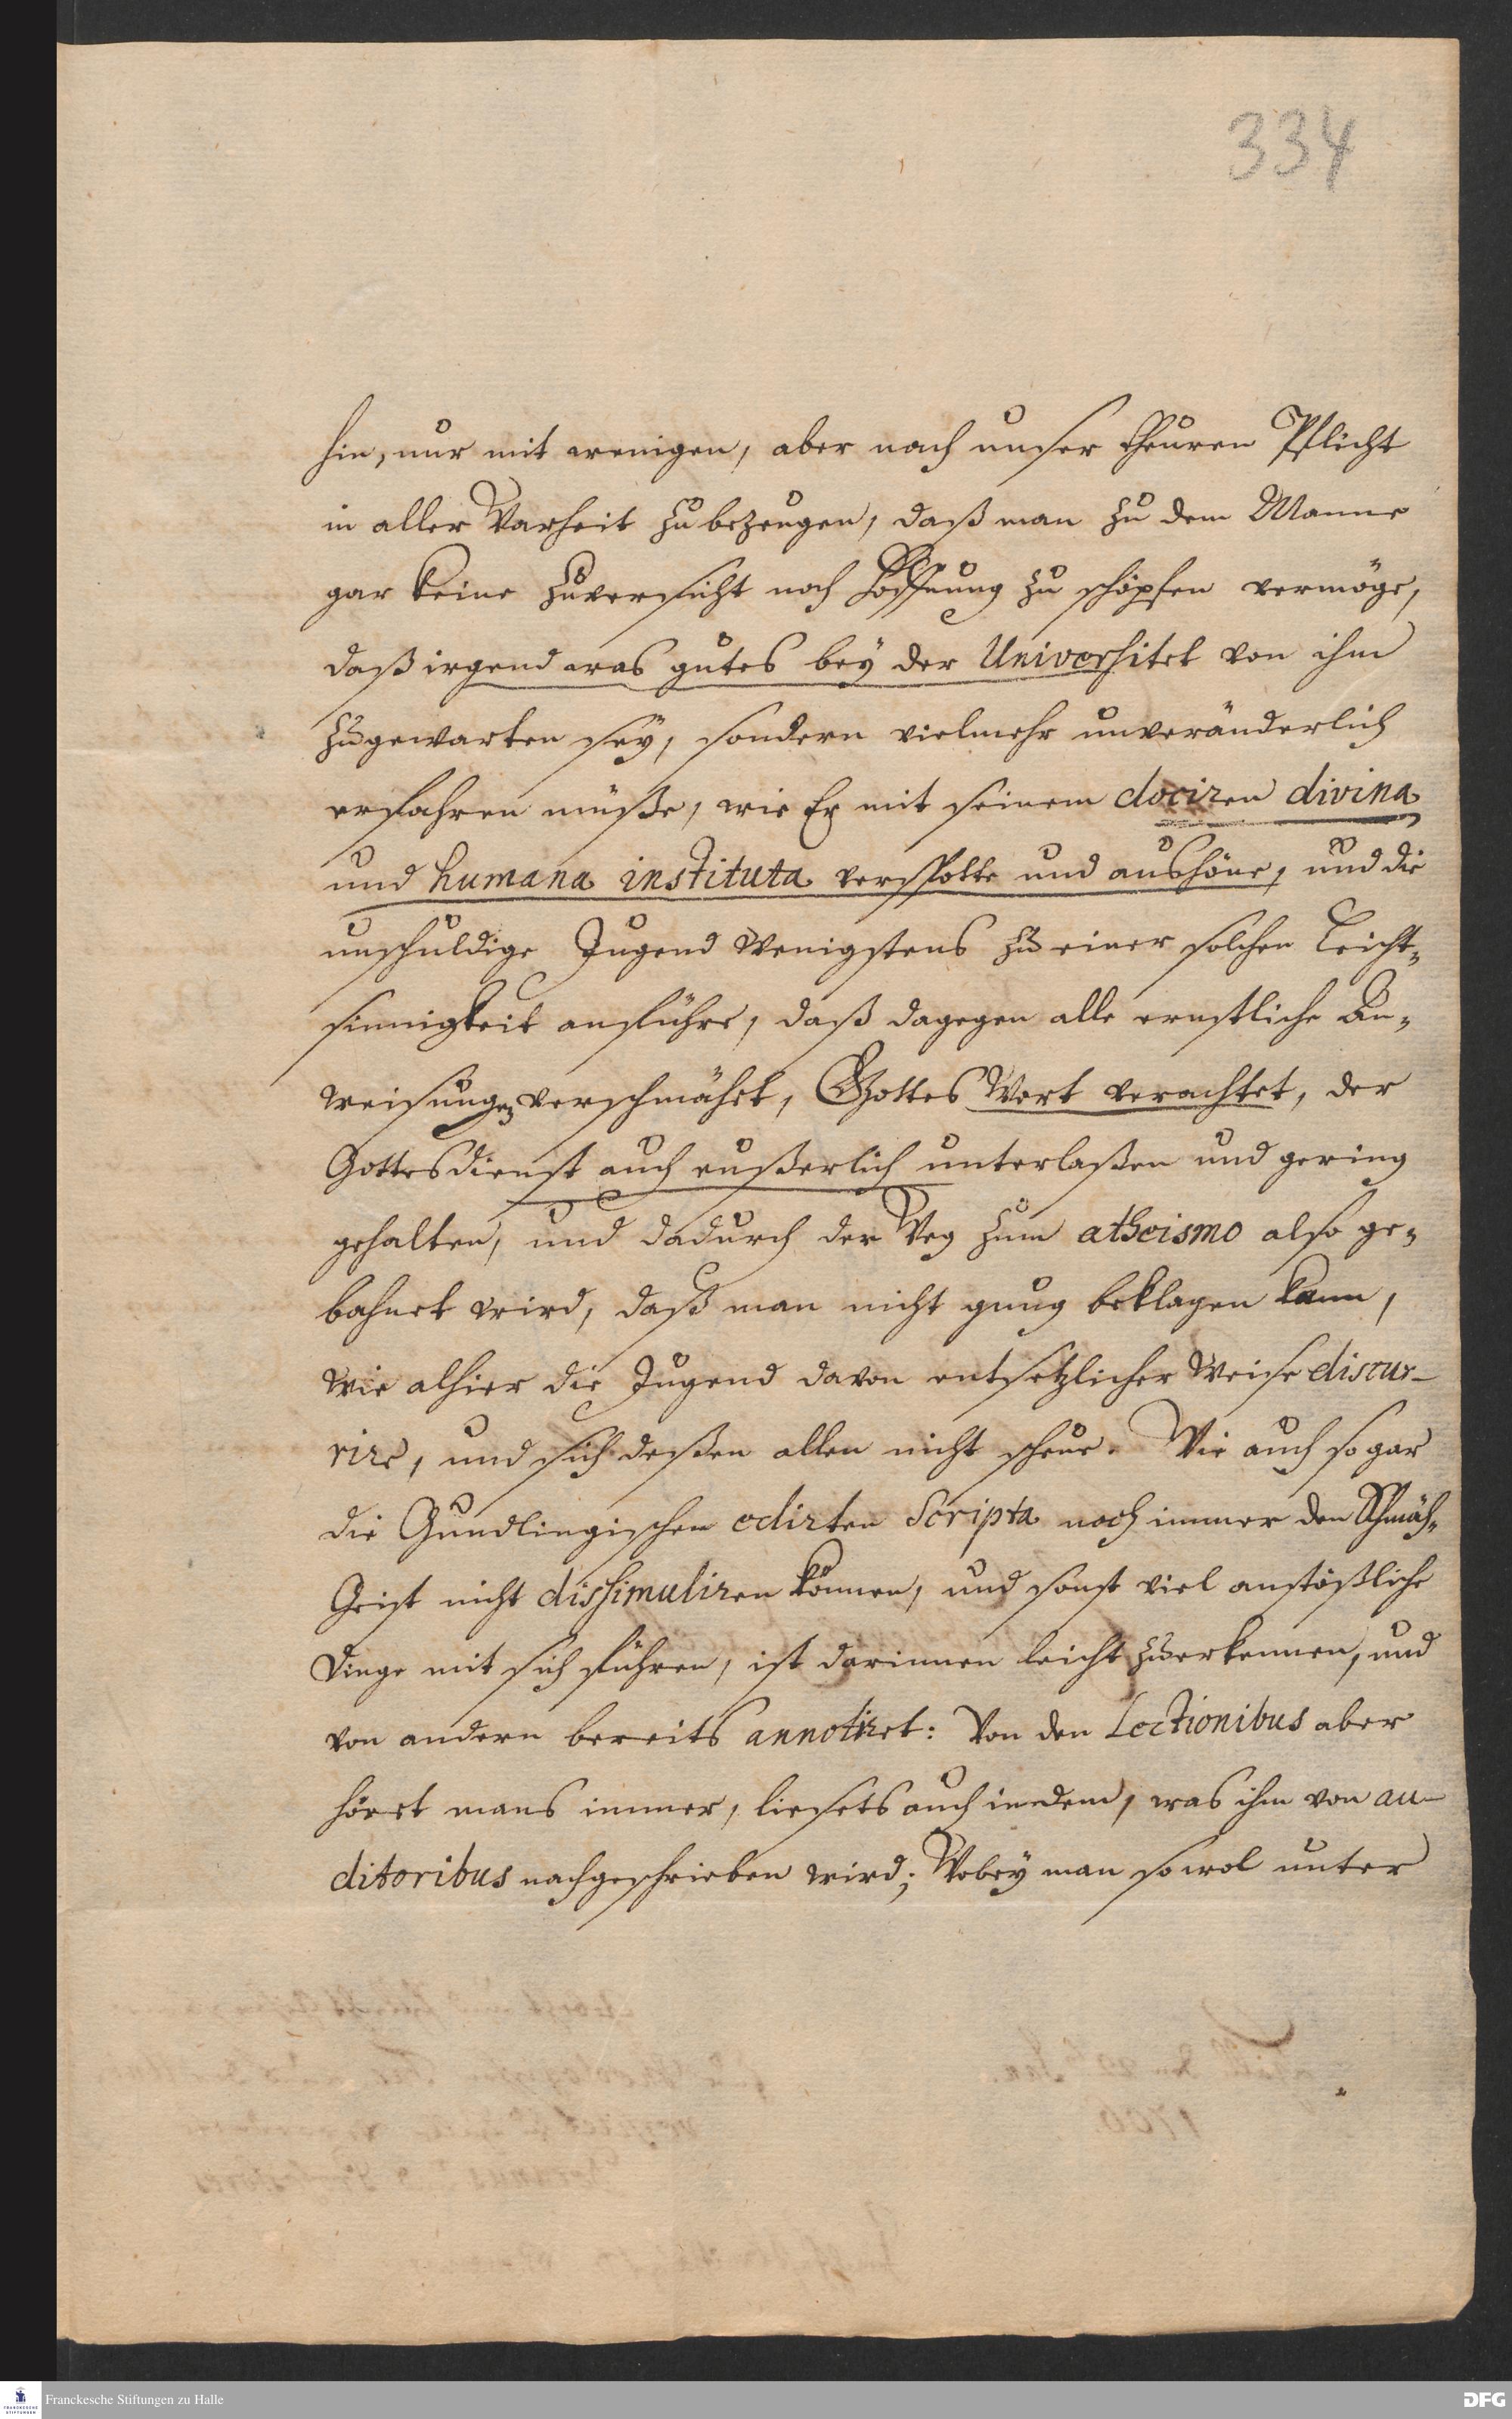 334
hin, nur mit wenigen, aber nach unser theuren Pflicht
in aller Warheit zu bezeugen, daß man zu dem Manne
gar keine Zuversicht noch Hoffnung zu schöpfen vermöge,
daß irgend was gutes bey der Universitet von ihm
zugewarten sey, sondern vielmehr unveränderlich
erfahren müße, wie Er mit seinem dociren divina
und humana instituta verspotte und aushöne, und die
unschuldige Jugend wenigstens zu einer solchen Leicht-
sinnigkeit anführe, daß dagegen alle ernstliche An-
weisungen verschmähet, Gottes Wort verachtet, der
Gottesdienst auch eußerlich unterlaßen und gering
gehalten, und dadurch der Weg zum atheismo also ge-
bahnet wird, daß man nicht gnug beklagen kann,
wie alhier die Jugend davon entsetzlicher Weise discur-
rire, und sich deßen allen nicht scheue. Wie auch so gar
die Gundlingischen edirten Scripta noch immer den Schmäh-
Geist nicht dissimuliren können, und sonst viel anstößliche
Dinge mit sich führen, ist darinnen leicht zuerkennen, und
von andern bereits annotiret: Von den Lectionibus aber
höret mans immer, liesets auch in dem, was ihm von au-
ditoribus nachgeschrieben wird; Wobey man so wol unter
Franckesche Stiftungen zu Halle
DFG